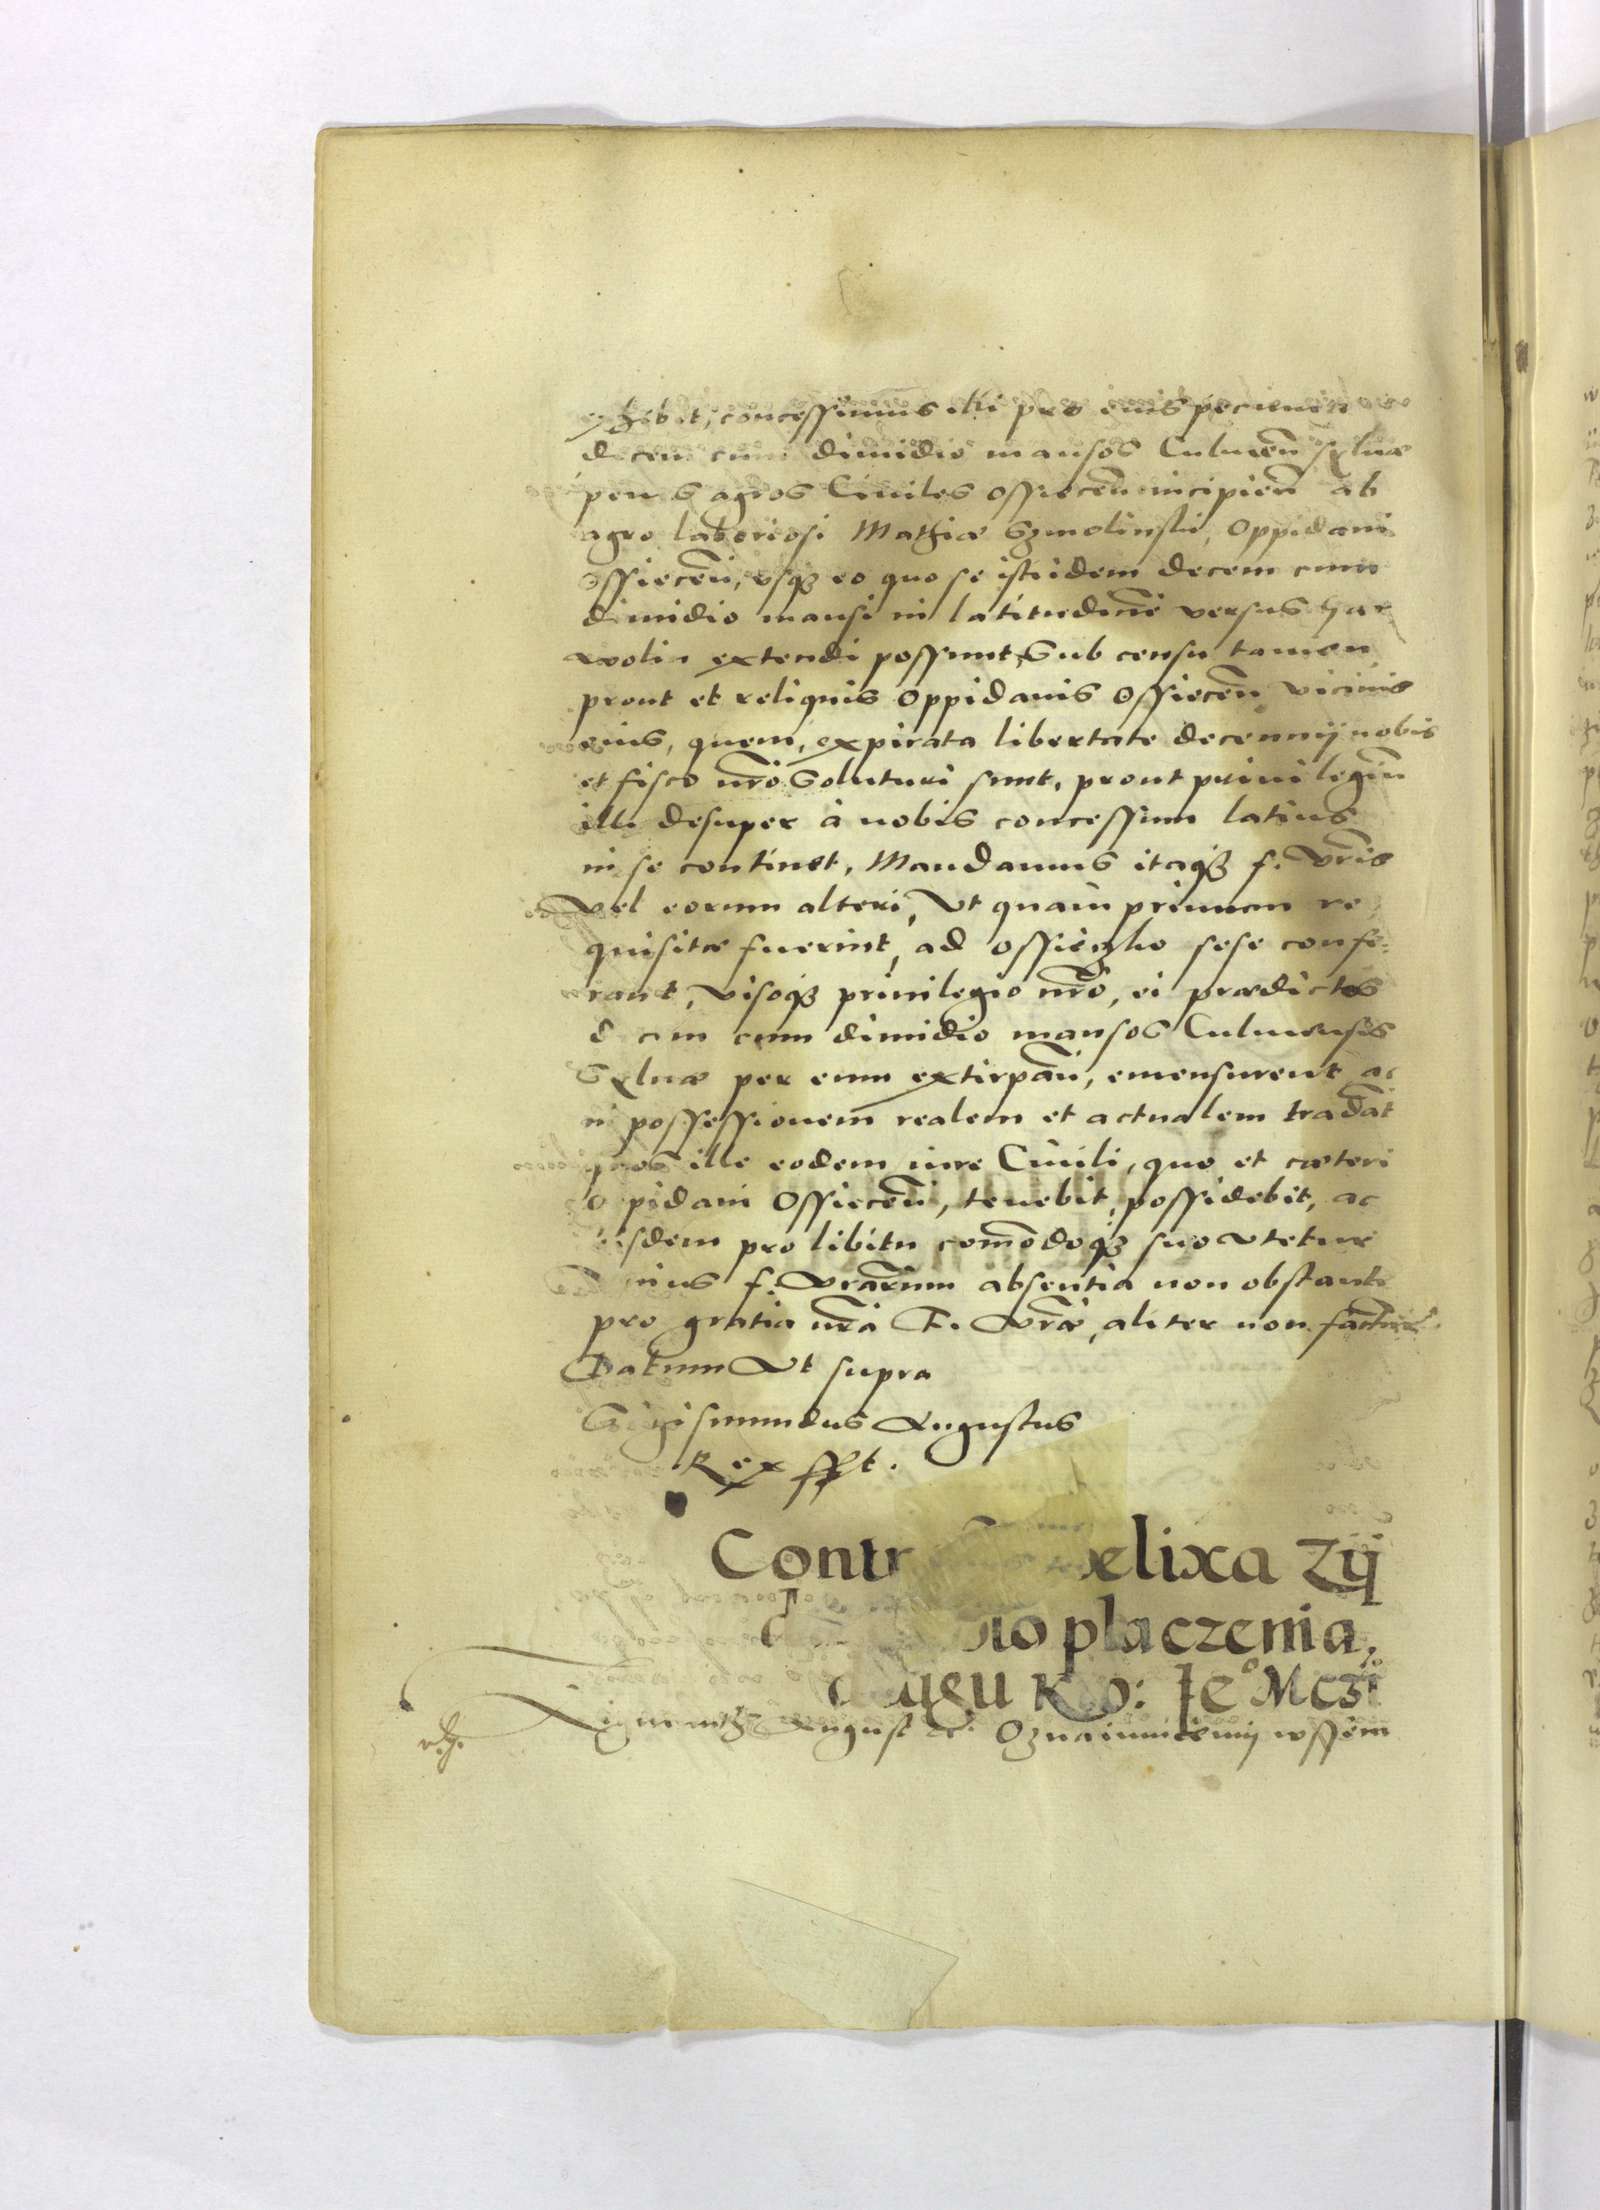 exhibit, concessimus illi pro eius
decem cum dimidio mansos Culmeñ sylvæ
penes agros Ciuiles Ossieceñ incipieñ ab
agro laboriosi Mathiæ Szmolinski, Oppidani
Ossieceñ, vsq₃ eo quo se isti idem decem cum
dimidio mansi in latitudinē versus Gar
wolin extendi possunt, Sub censu tamen
prout et reliquis Oppidanis Ossieceñ vicinis
eius, quem, expirata libertate decennij nobis
et fisco nr̃o Soluturi sunt, prout priuilegiū
illi desuper à nobis concessum latius
in se continet, Mandamus itaq₃ f. Vr̃is
Vel eorum alteri, Vt quam primum re
quisitæ fuerint, ad Ossieczko sese confe:
rant, Visoq₃ priuilegio nr̃o, ei prædictos
d cem cum dimidio mansos Culmenses
Syluæ per eum extirpañ, emensurent ac
in possessionem realem et actualem tradāt
quos ille eodem iure Ciuili, quo et cæteri
O pidani Ossieceñ, tenebit, possidebit, ac
iisdem pro libitu com̄odoq₃ suo vtetur
nius f. Vr̃arum absentia non obstante
pro gratia nr̃a F. Vr̃æ, aliter non factur̃.
Datum Vt supra
Sigismundus Augustus
Rex sspt.
Contr elixa Zÿ
no placzenia,
dlugu Kro: Je° Mczi
Zigmunth August etc. Oznaimuiemy wssem